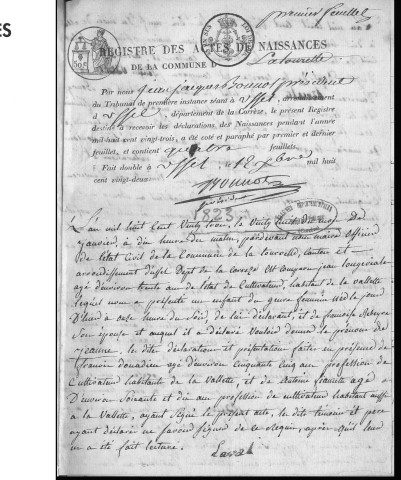 ES
premier feuillet
REGISTRE DES ACTES DE NAISSANCES
DE LA COMMUNE D Latourette
Par nous Jean Jacques Bonnot président
du Tribunal de première instance séant à Ussel, arrondissement
d'Ussel, département de la Corrèze, le présent Registre
destiné à recevoir les déclarations des Naissances pendant l'année
mil huit cent vingt-trois, a été coté et paraphé par premier et dernier
feuillet, et contient quatre feuillets.
Fait double à Ussel le 18 Xbre mil huit
cent vingt-deux.
Bonnot
président
1823
L'an mil huit cent Vingt trois, le Vingt huit du mois De
Janvier, à dix heures du matin, pardevant nous maire officier
de l'état Civil de la Commune de la tourette, canton et
arrondissement d'ussel Dept de la correze Est Comparu jean
agé d'environ trente ans de l'état de Cultivateur, habitant de la Vallette
lequel nous a présenté un enfant du genre feminin né le jour
D'hier à onze heures du Soir, de lui déclarant, et de françoise
Son épouse et auquel il a déclaré vouloir donner le prénom de
jeanne, les dites déclaration et présentation faite en présence de
françois donadieu agé d'environ Cinquante Cinq ans profession de
Cultivateur habitant de la Vallette, et de Antoine agé
D'environ Soixante et dix ans profession de cultivateur habitant aussi
à la Vallette, ayant Signé le présent acte, les dits temoins et pere
ayant déclaré ne savoir signer de ce Requis, après qu'il leur
en a été fait lecture.
Laval